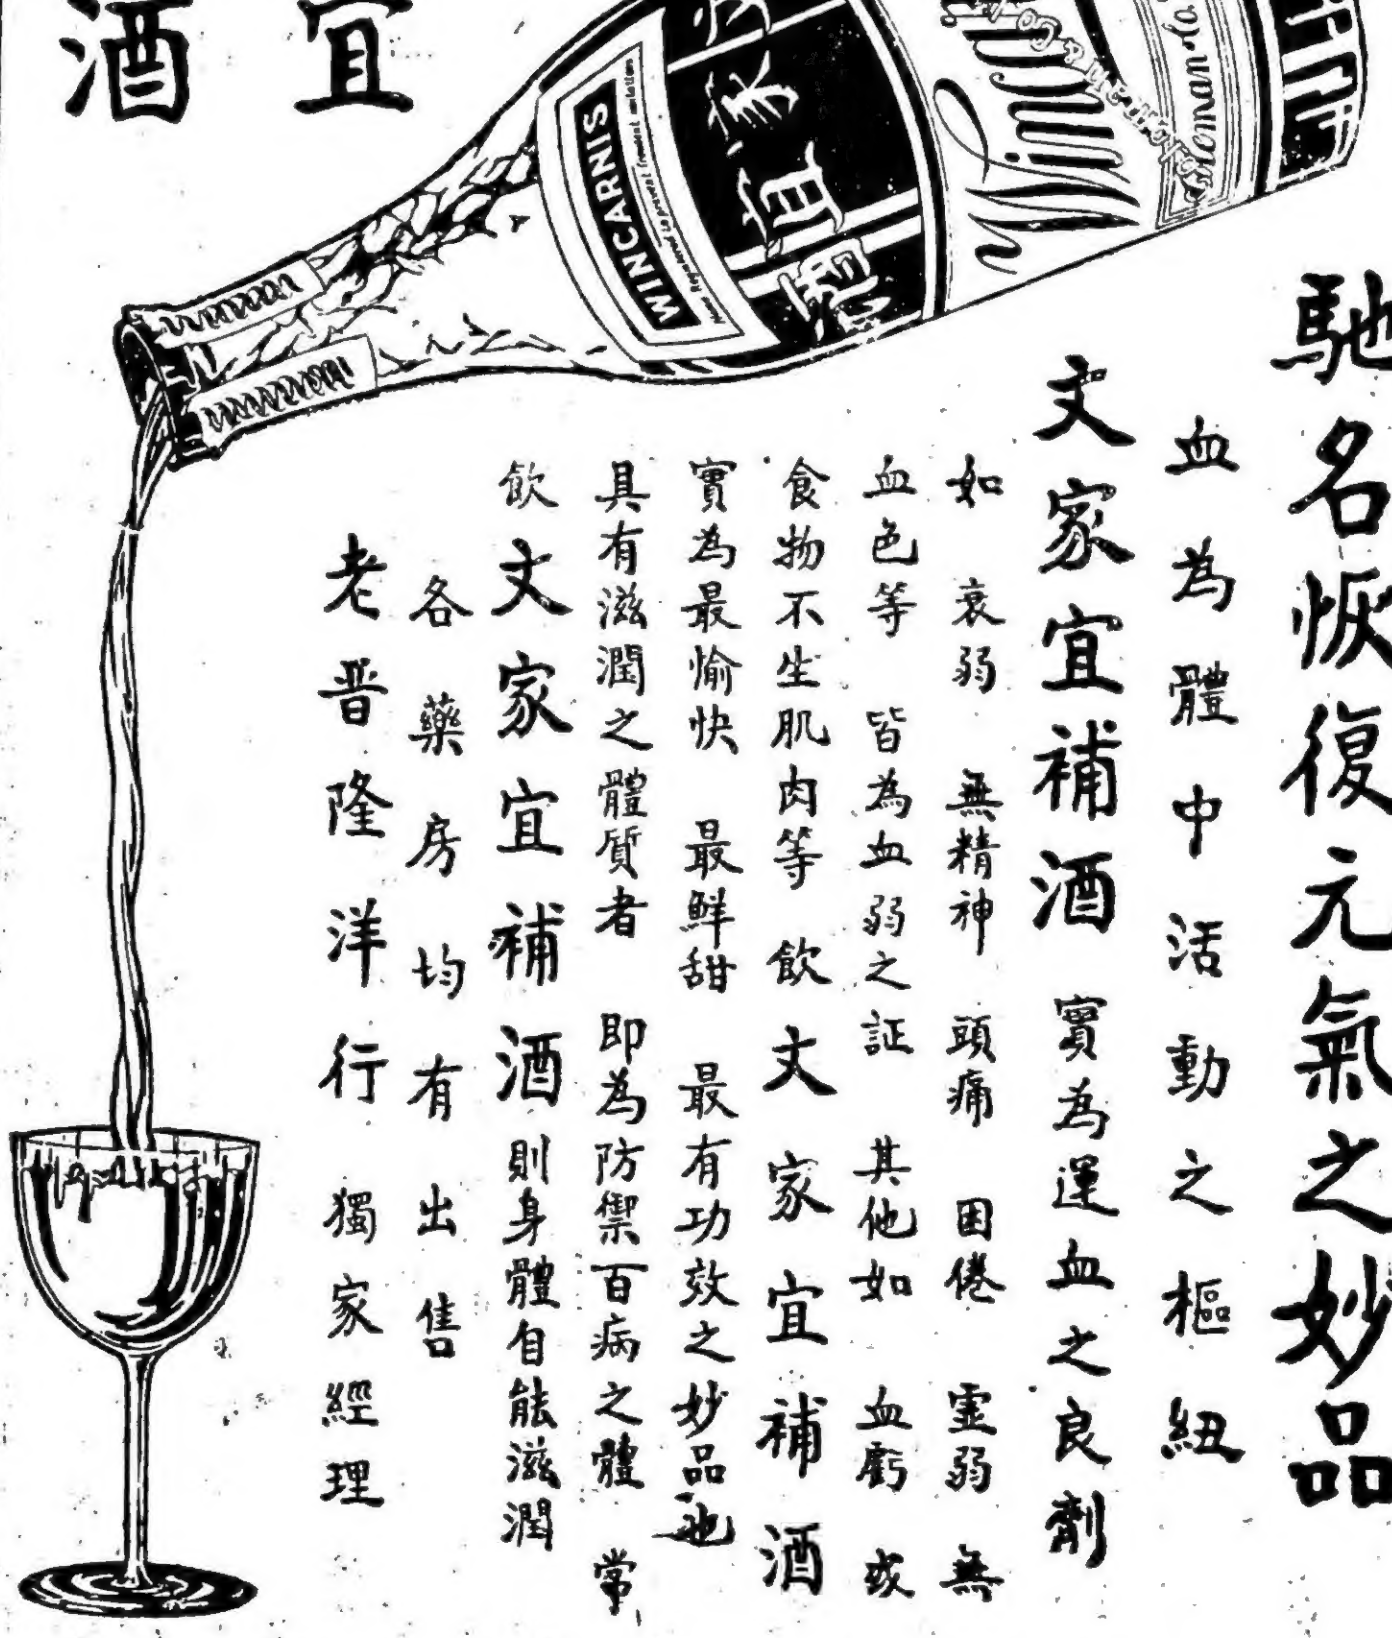 宜
酒
WINCARNIS
家宜
馳名恢復元氣之妙品
血為體中活動之樞紐
文家宜補酒 實為運血之良劑
如 衰弱 無精神 頭痛 困倦 靈弱 無
血色等 皆為血弱之証 其他如 血虧 或
食物不生肌肉等 飲文家宜補酒
實為最愉快 最鮮甜 最有功效之妙品也
具有滋潤之體質者 即為防禦百病之體 常
飲文家宜補酒則身體自能滋潤
各藥房均有出售
老晋隆洋行 獨家經理